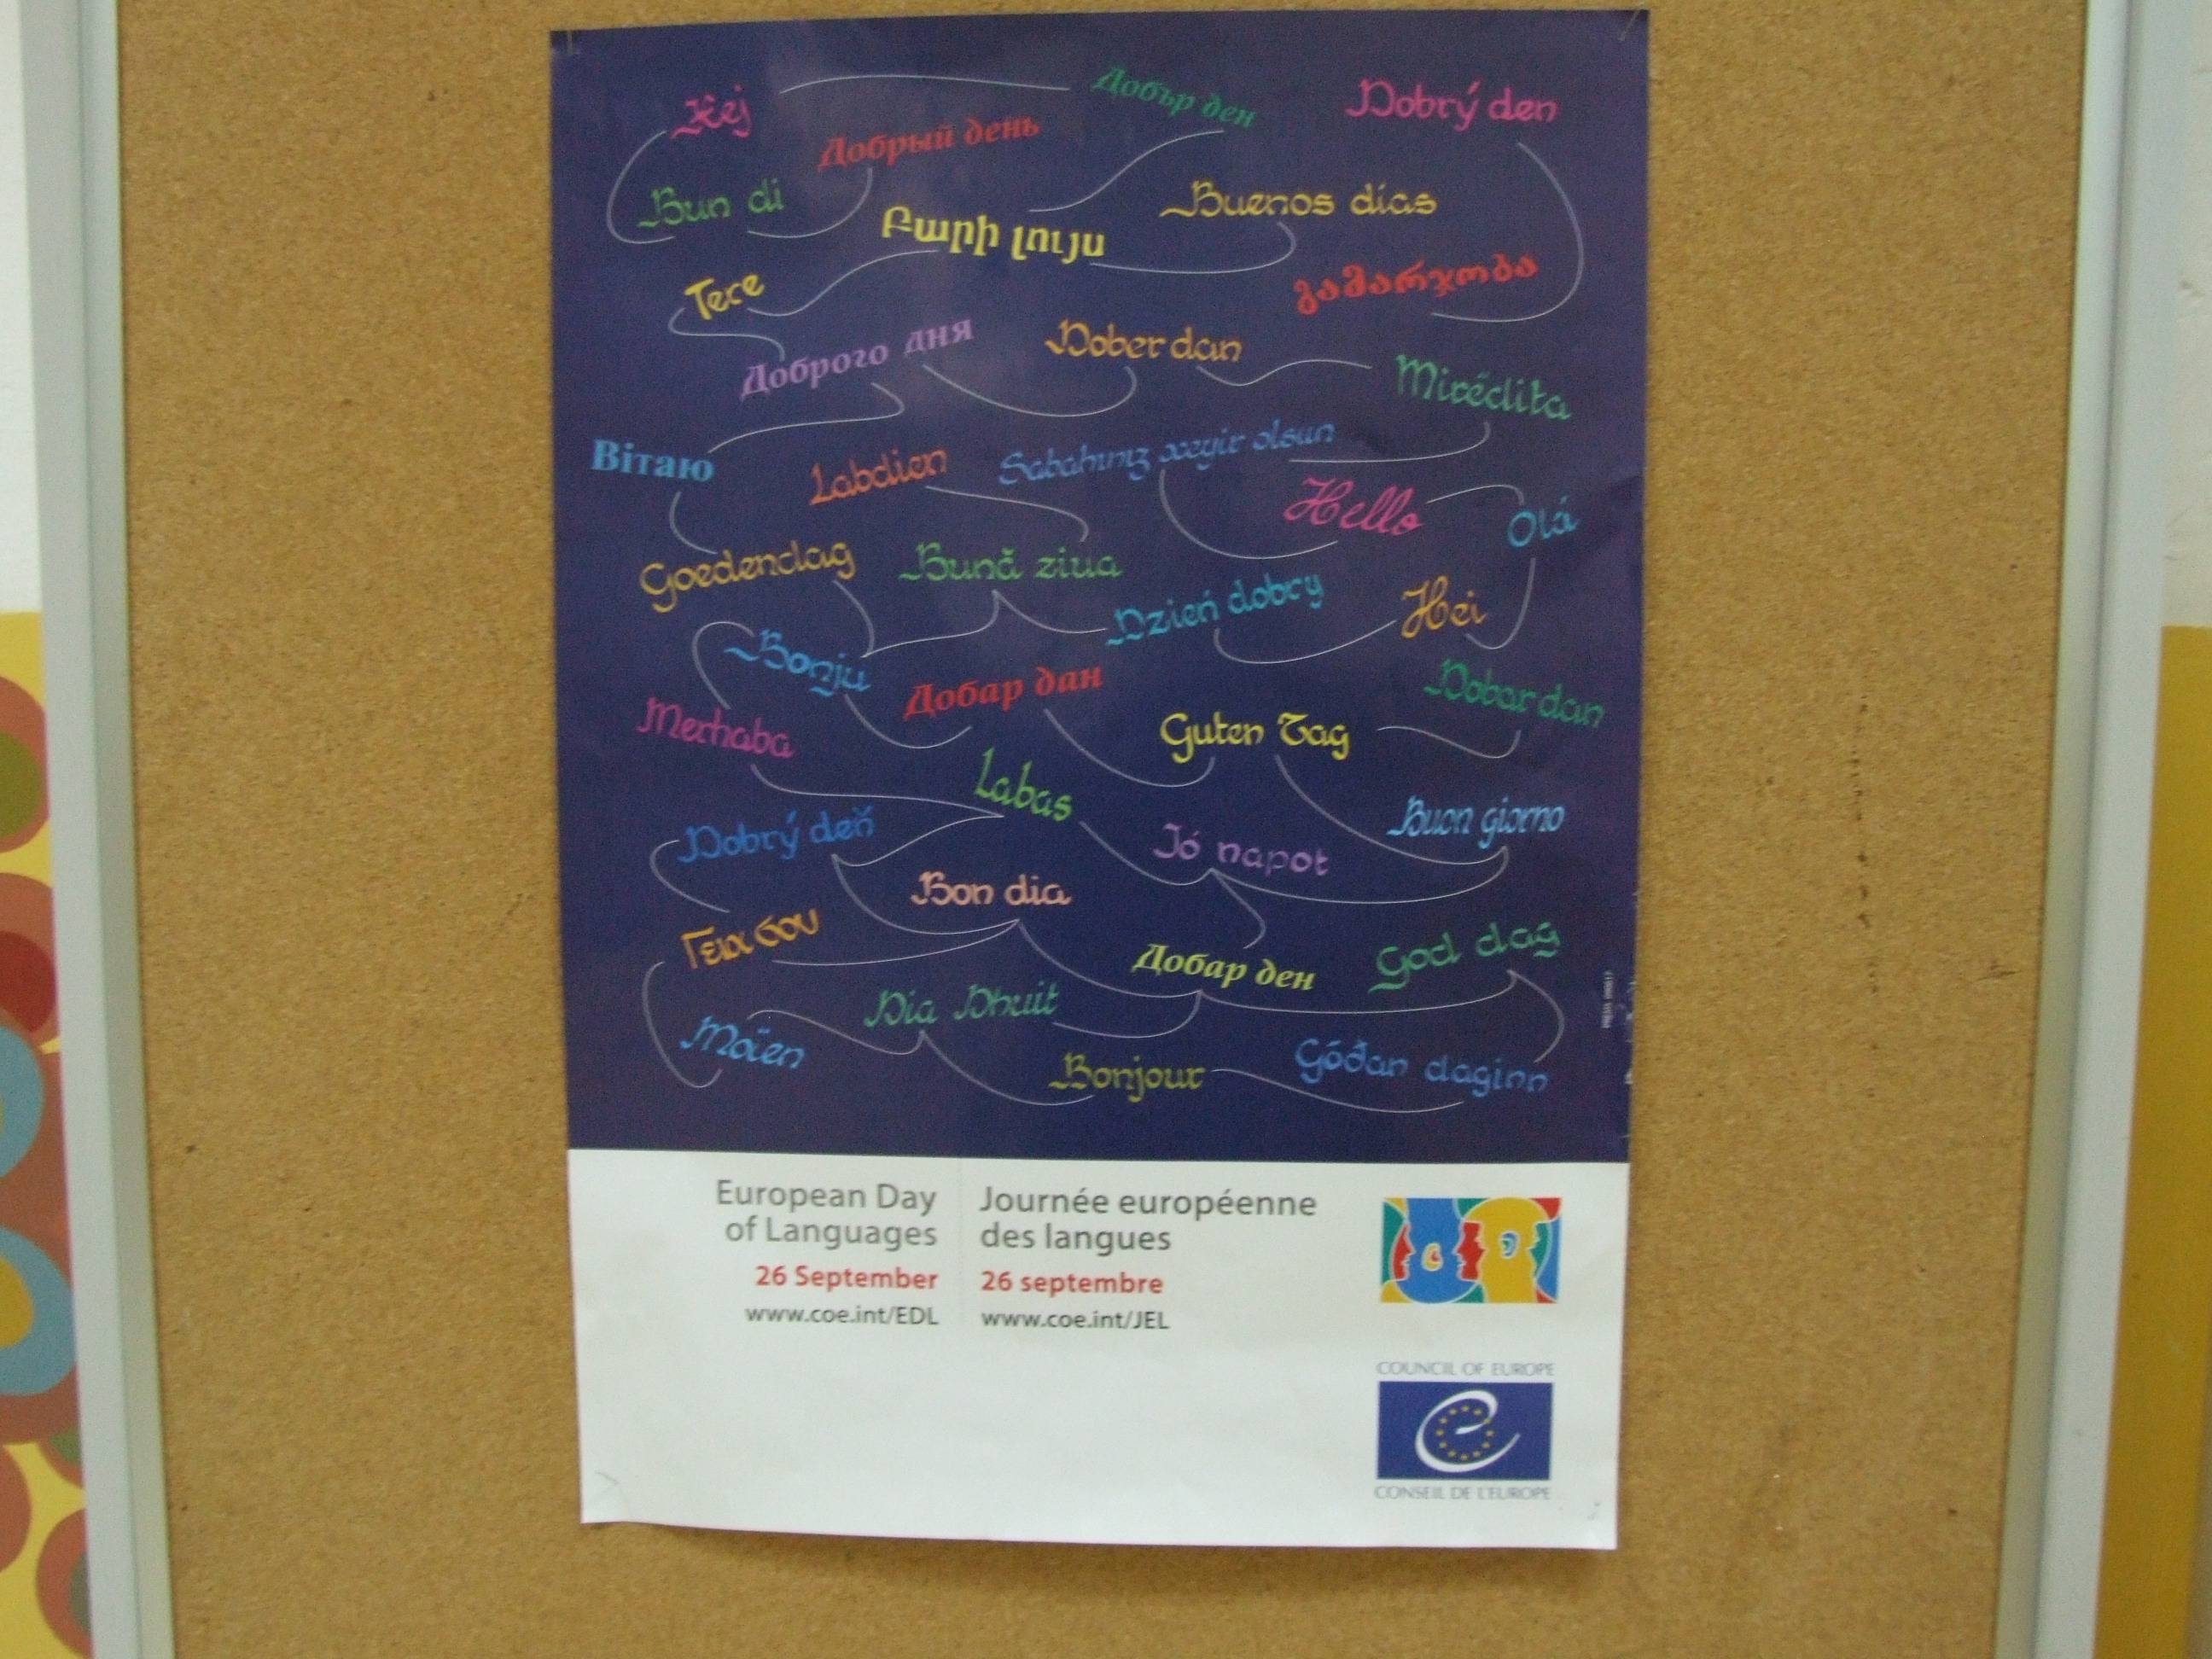 Hej
Добър ден
Dobrý den
Добрый день
Bun di
Buenos días
Բարի լույս
Tere
გამარჯობა
Доброго дня
Dober dan
Mirëdita
Вітаю
Labdien
Sabahınız xeyir olsun
Hello
Olá
Goedendag
Bună ziua
Dzień dobry
Hei
Bonju
Добар дан
Dobar dan
Merhaba
Guten Tag
Labas
Buon giorno
Dobrý deň
Jó napot
Bon dia
Γεια σου
Добар ден
God dag
Dia Dhuit
Moïen
Bonjour
Góðan daginn
European Day
of Languages
26 September
www.coe.int/EDL
Journée européenne
des langues
26 septembre
www.coe.int/JEL
COUNCIL OF EUROPE
CONSEIL DE L'EUROPE